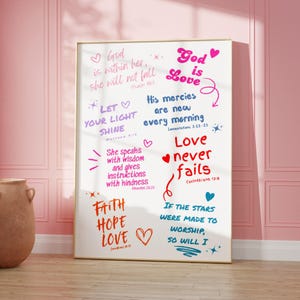 God
is within her,
she will not fall
Psalm 46:5
God
is
Love
LET
YOUR LIGHT
SHINE
His mercies
are new
every morning
Lamentations 3:22-23
She speaks
with wisdom
and gives
instructions
with kindness
Love
never
fails
Corinthians 13:8
FAITH
HOPE
LOVE
IF THE STARS
WERE MADE TO
WORSHIP,
SO WILL I